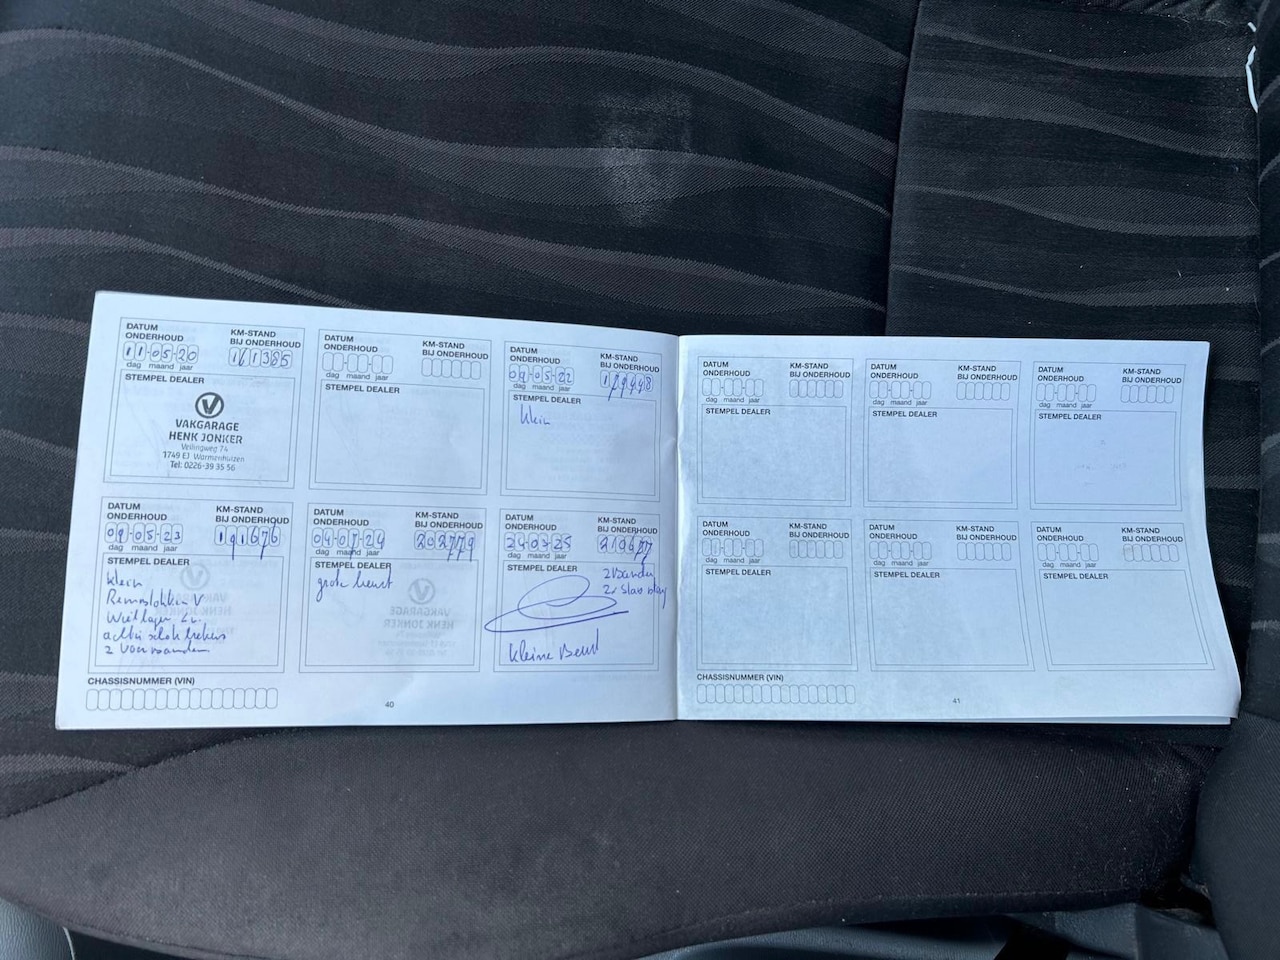 DATUM ONDERHOUD
KM-STAND BIJ ONDERHOUD
11-05-20
161385
dag maand jaar
STEMPEL DEALER
VAKGARAGE
HENK JONKER
Veilingweg 74
1749 EJ Warmenhuizen
Tel: 0226-39 35 56
DATUM ONDERHOUD
KM-STAND BIJ ONDERHOUD
dag maand jaar
STEMPEL DEALER
DATUM ONDERHOUD
KM-STAND BIJ ONDERHOUD
09-05-22
179448
dag maand jaar
STEMPEL DEALER
klein
DATUM ONDERHOUD
KM-STAND BIJ ONDERHOUD
09-05-23
191676
dag maand jaar
STEMPEL DEALER
klein
Remblokken V
Wiellager
2
DATUM ONDERHOUD
KM-STAND BIJ ONDERHOUD
04-07-24
202779
dag maand jaar
STEMPEL DEALER
grote beurt
VAKGARAGE
HENK JONKER
DATUM ONDERHOUD
KM-STAND BIJ ONDERHOUD
24-03-25
219677
dag maand jaar
STEMPEL DEALER
kleine Beurt
CHASSISNUMMER (VIN)
40
DATUM ONDERHOUD
KM-STAND BIJ ONDERHOUD
dag maand jaar
STEMPEL DEALER
DATUM ONDERHOUD
KM-STAND BIJ ONDERHOUD
dag maand jaar
STEMPEL DEALER
DATUM ONDERHOUD
KM-STAND BIJ ONDERHOUD
dag maand jaar
STEMPEL DEALER
DATUM ONDERHOUD
KM-STAND BIJ ONDERHOUD
dag maand jaar
STEMPEL DEALER
DATUM ONDERHOUD
KM-STAND BIJ ONDERHOUD
dag maand jaar
STEMPEL DEALER
DATUM ONDERHOUD
KM-STAND BIJ ONDERHOUD
dag maand jaar
STEMPEL DEALER
CHASSISNUMMER (VIN)
41